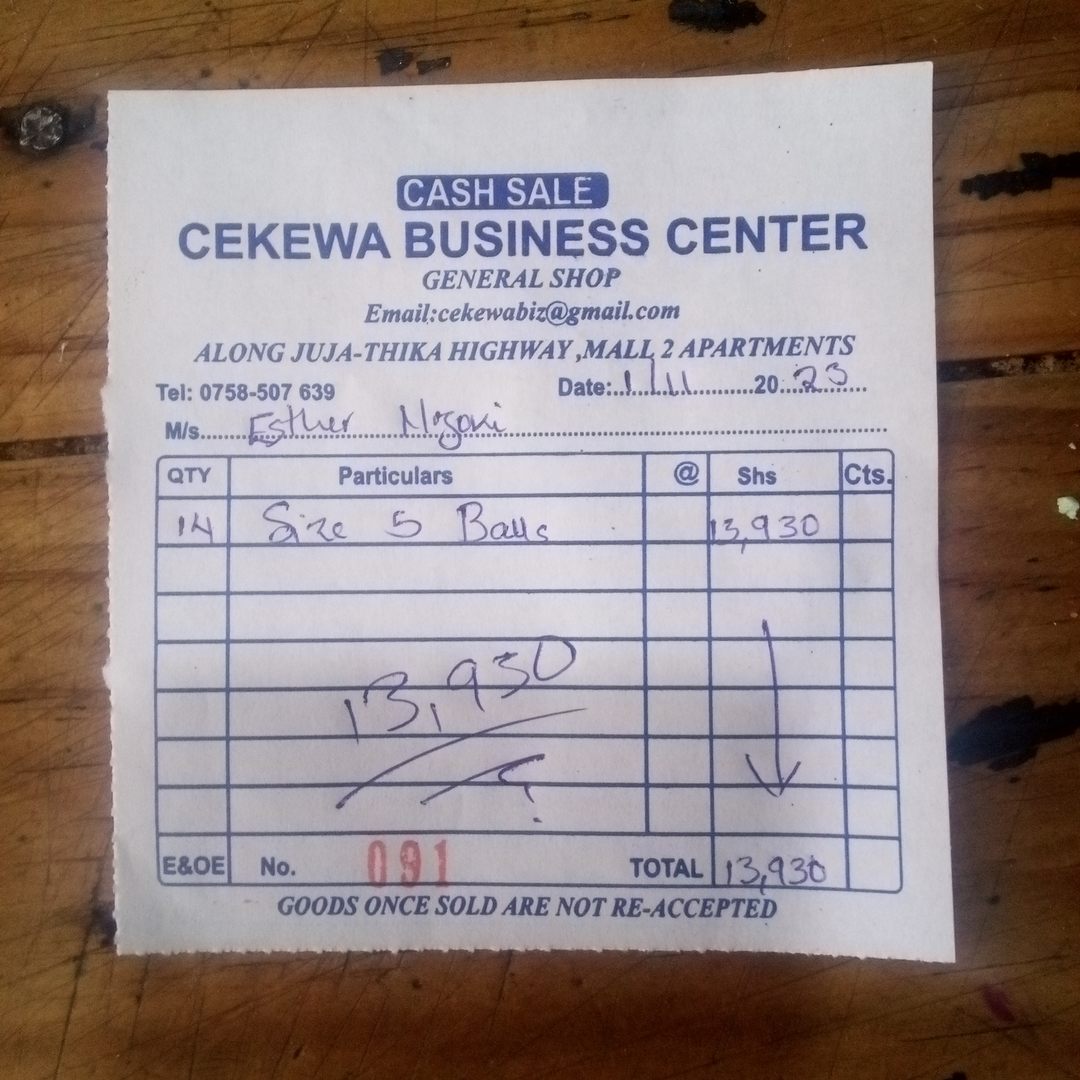 CASH SALE
CEKEWA BUSINESS CENTER
GENERAL SHOP
Email:cekewabiz@gmail.com
ALONG JUJA-THIKA HIGHWAY,MALL 2 APARTMENTS
Tel: 0758-507 639 Date: 1/11 2023
M/s Esther
QTY Particulars @ Shs Cts.
14 Size 5 Balls 13,930
13,930
E&OE No. 091 TOTAL 13,930
GOODS ONCE SOLD ARE NOT RE-ACCEPTED